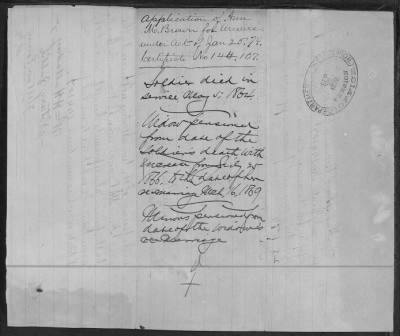 Application of Ann
M. Brown for Arrears
under Act of Jan 25, 79.
Certificate No 144,107.
Soldier died in
service May 5, 1864.
Widow pensioned
from date of the
soldier's death with
increase from July 25
1866. to the date of her
remarriage Mch 6, 1869
Minors pensioned from
date of the widow's
remarriage